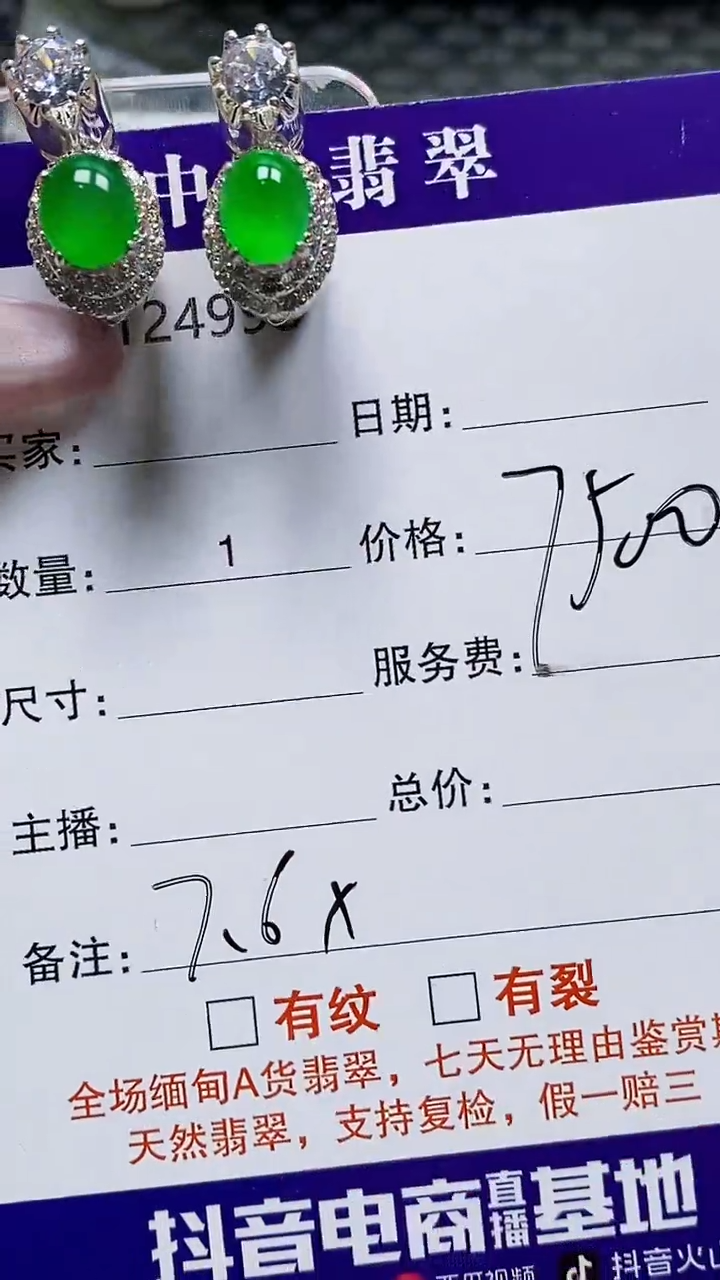 中 翡翠
12499
买家：
日期：
数量： 1
价格： 7500
尺寸：
服务费：
主播：
总价：
备注： 7.6 x
有纹 有裂
全场缅甸A货翡翠，七天无理由鉴赏期
天然翡翠，支持复检，假一赔三
抖音电商直播基地
西瓜视频 抖音火山